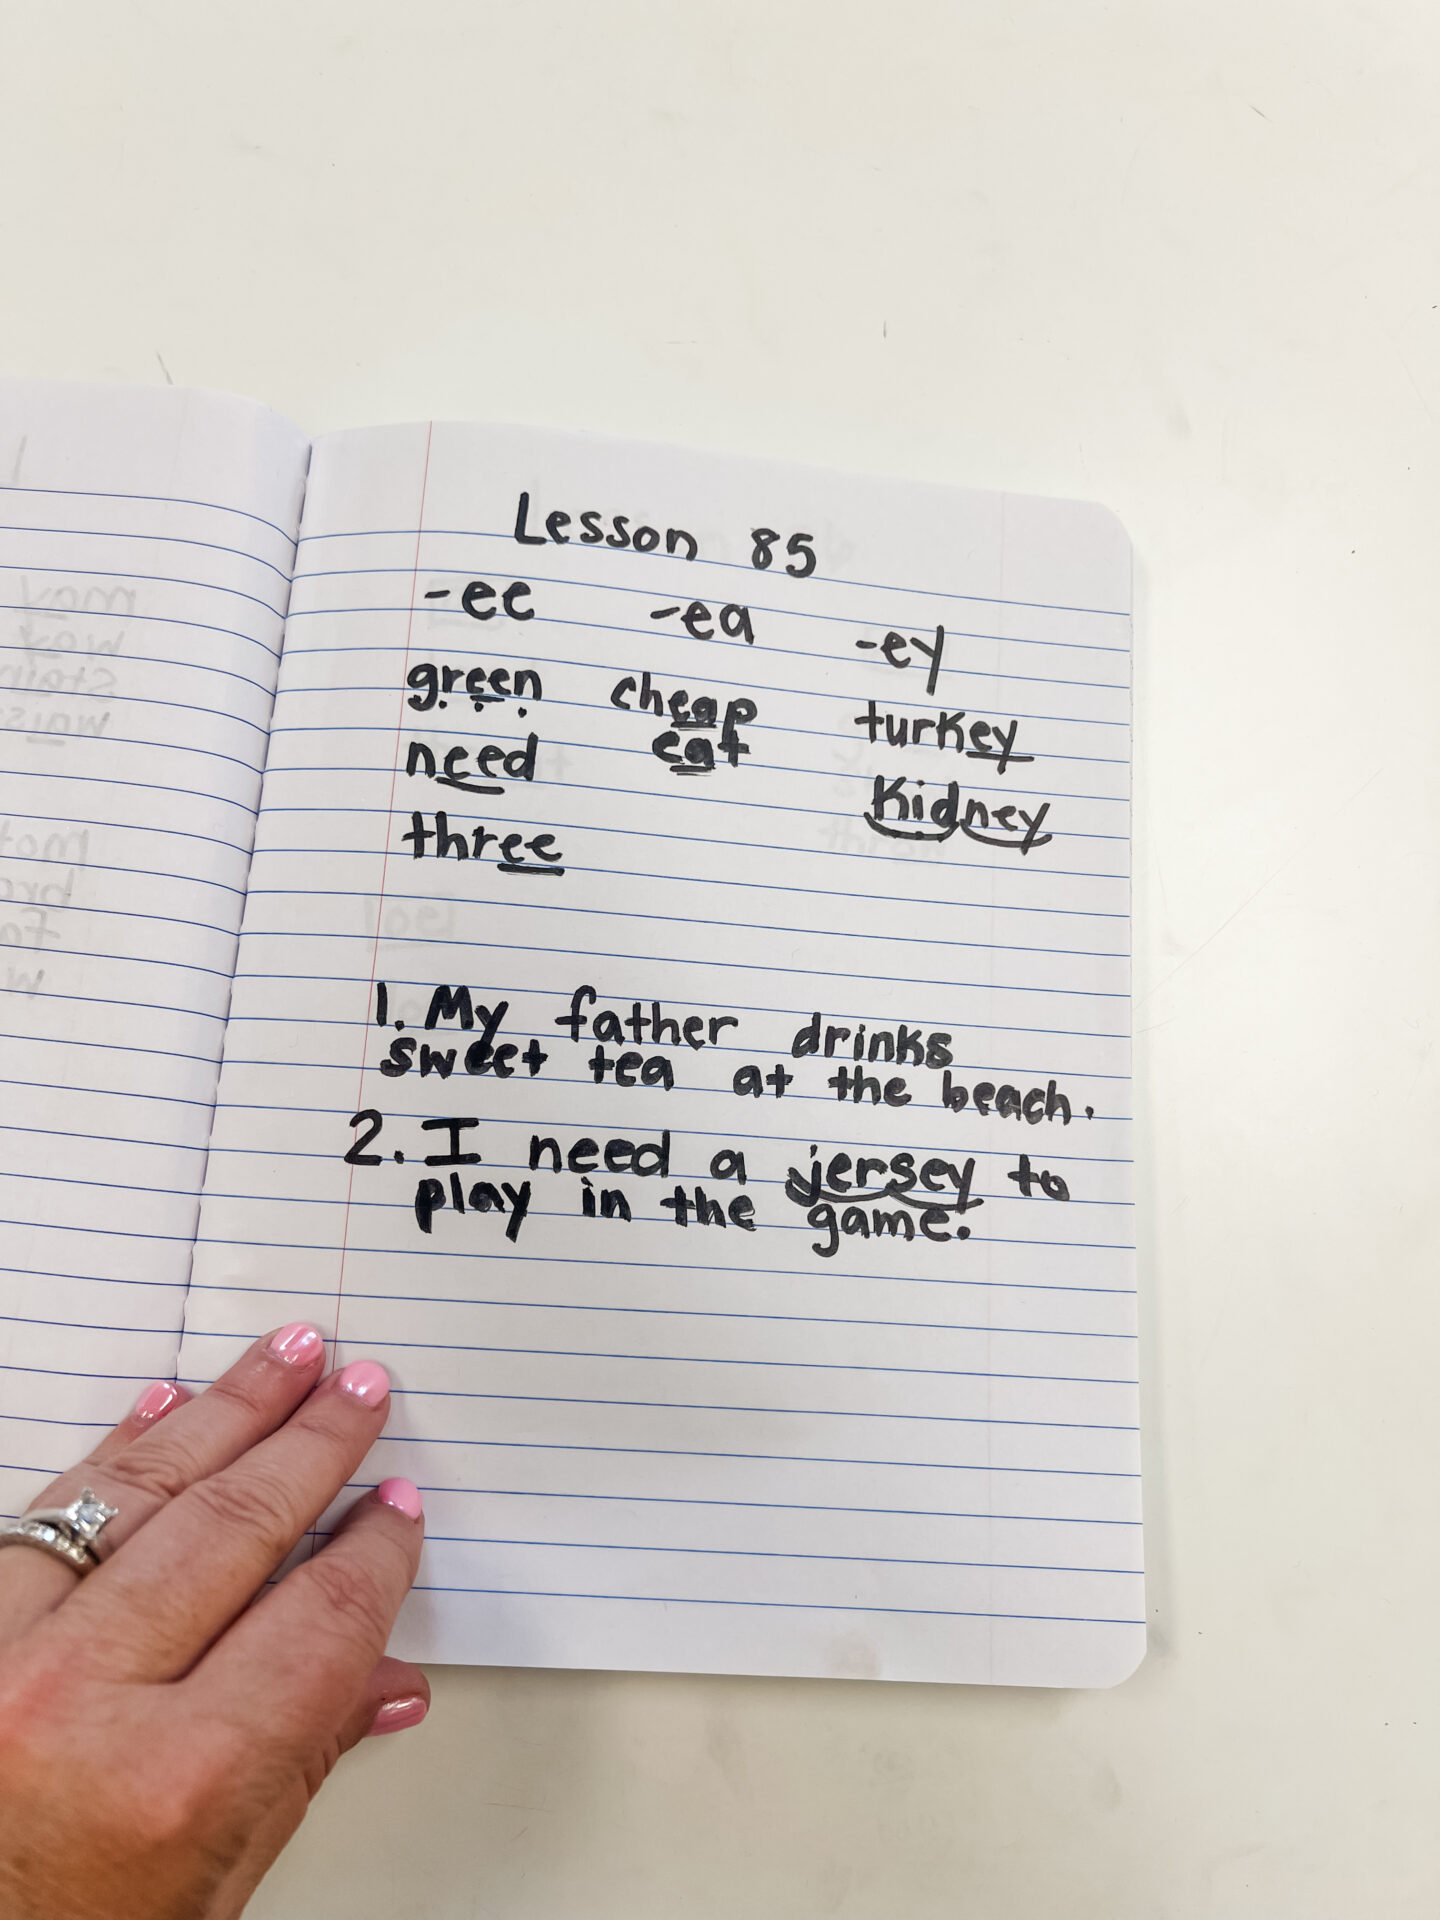 Lesson 85
-ee -ea -ey
green cheap turkey
need eat kidney
three
1. My father drinks
sweet tea at the beach.
2. I need a jersey to
play in the game.
may
way